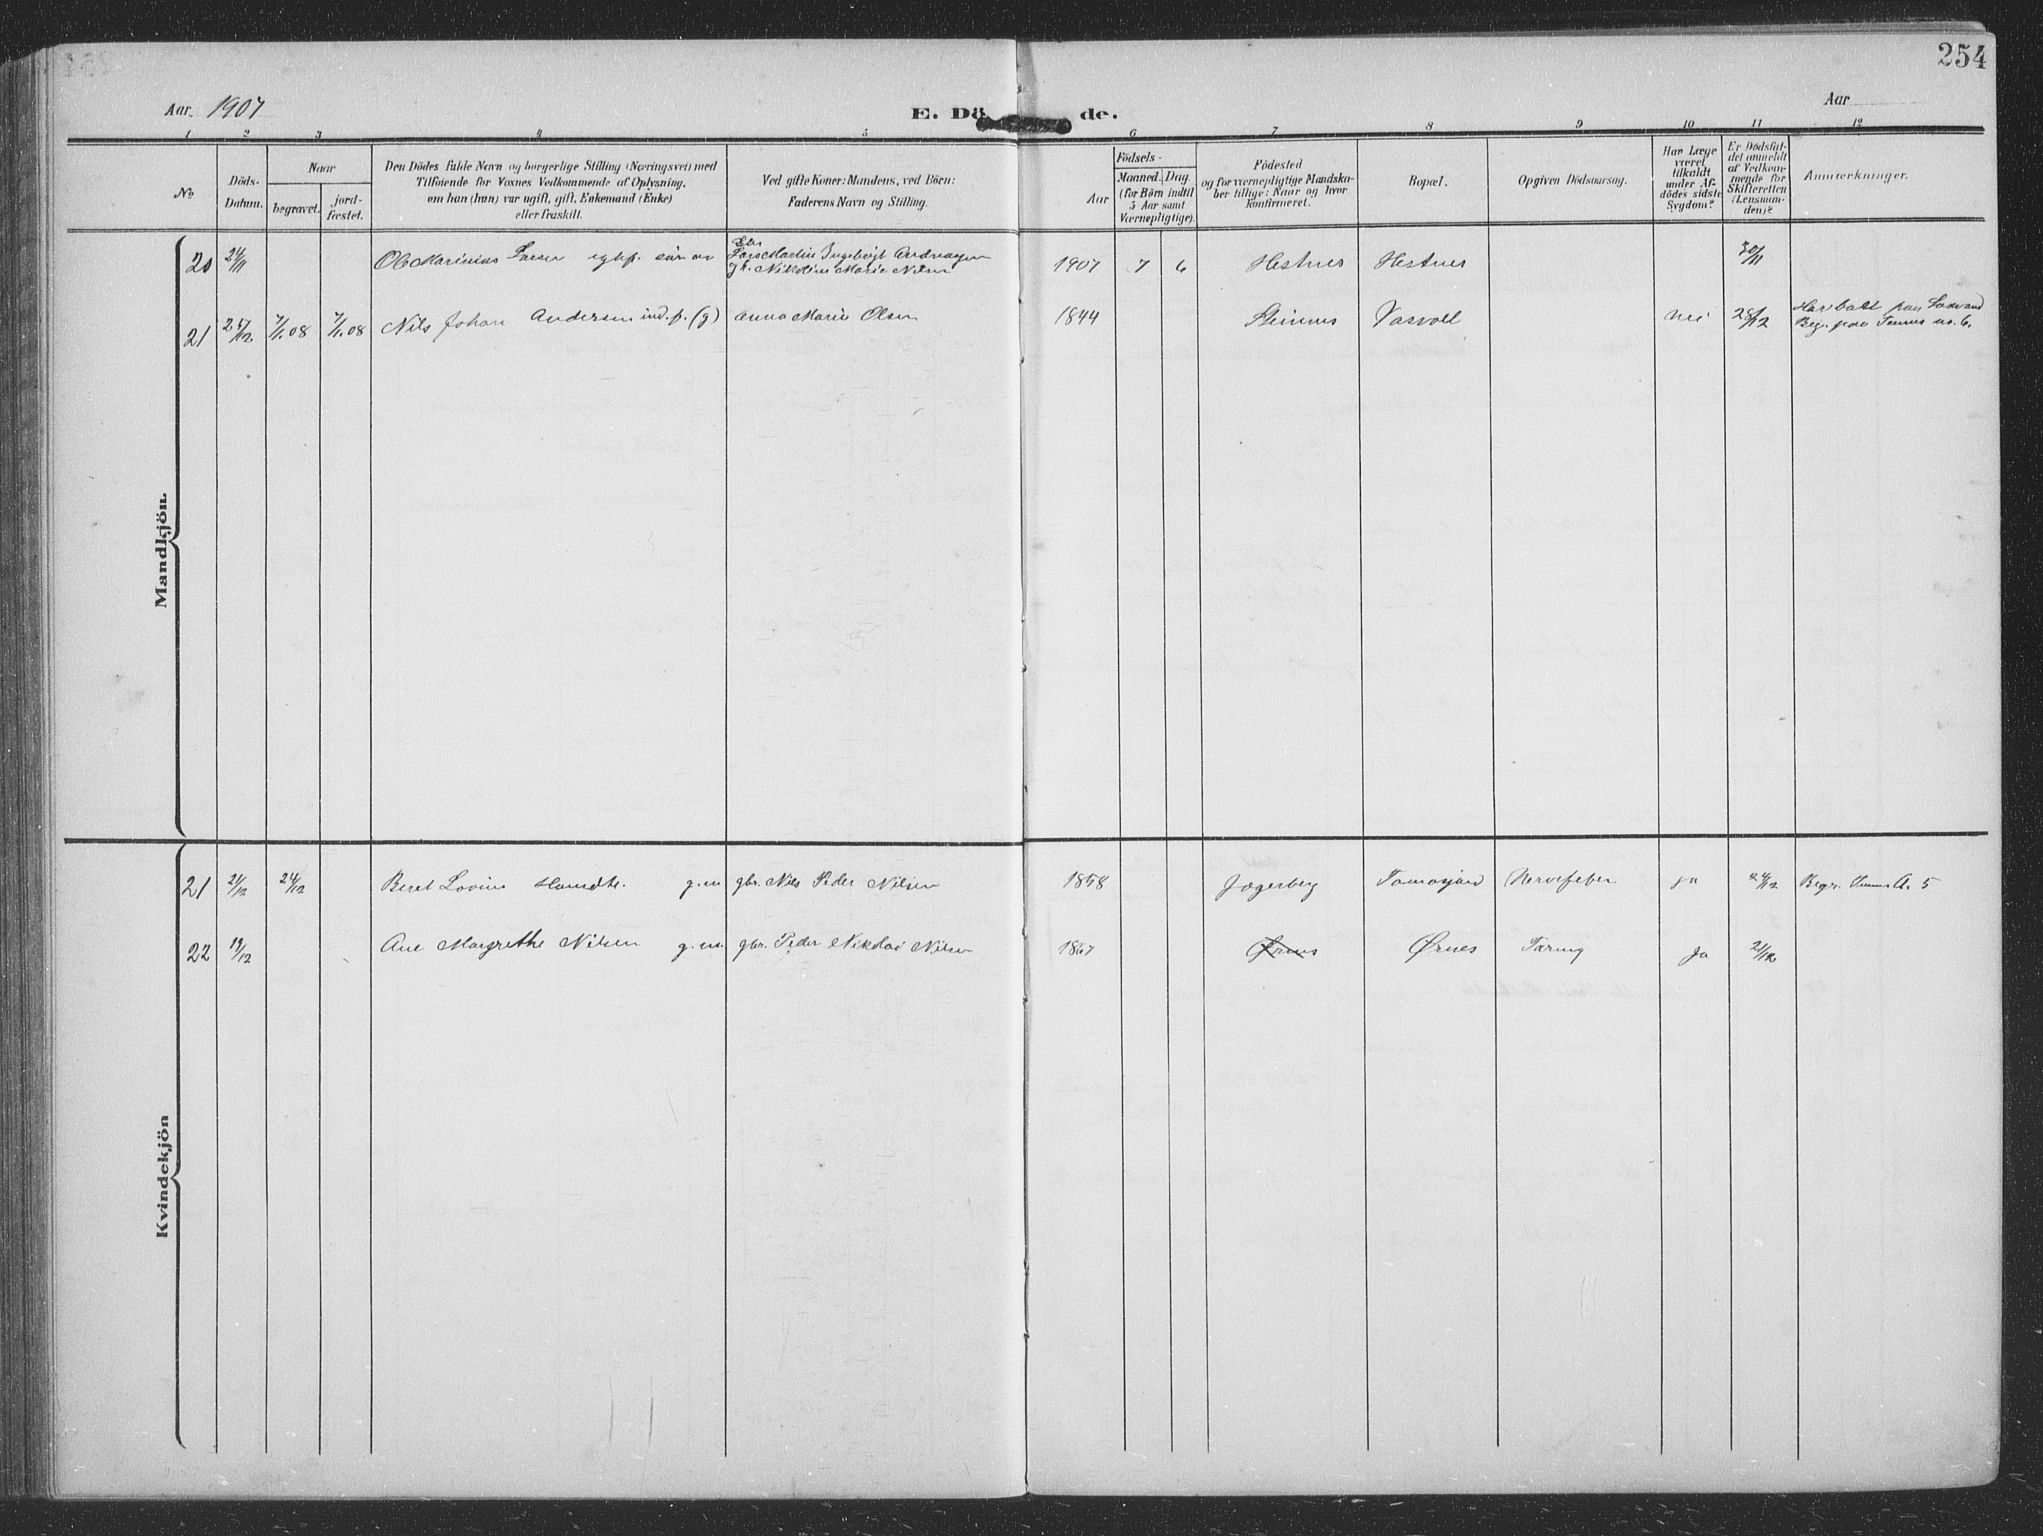 254
Aar 1907
E. Dö de.
Aar
1 2 3 4 5 6 7 8 9 10 11 12
No.
Döds-
Datum.
Naar
begravet.
jord-
fæstet.
Den Dödes fulde Navn og borgerlige Stilling (Næringsvei) med
Tilföiende for Voxnes Vedkommende af Oplysning,
om han (hun) var ugift, gift, Enkemand (Enke)
eller fraskilt.
Ved gifte Koner: Mandens, ved Börn:
Faderens Navn og Stilling.
Födsels-
Aar
Maaned. Dag.
(for Börn indtil
5 Aar samt
Værnepligtige).
Födested
og for værnepligtige Mandska-
ber tillige: Naar og hvor
Konfirmeret.
Bopæl.
Opgiven Dödsaarsag.
Har Læge
været
tilkaldt
under Af-
dödes sidste
Sygdom?
Er Dödsfal-
det anmeldt
af Vedkom-
mende for
Skifteretten
(Lensman-
den)?
Anmærkninger.
Mandkjön.
20 24/11 Ole Marinius Larsen søn av Lars Martin Ingebrigt Andreassen 1907 7 6 Hestnes Hestnes 30/11
Nikoline Marie Nilsen
21 27/12 7/1.08 7/1.08 Nils Johan Andersen ind.p. (g) Anna Marie Olsen 1844 Steinnes Vasvoll nei 28/12
Beg. paa
Kvindekjön
21 21/12 24/12 Beret Lovine g.m. gbr. Nils Peder Nilsen 1858 Jægerberg Nervefeber ja 24/12 Begr. A. 5
22 19/12 Ane Margrethe Nilsen g.m. gbr. Peder Nikolai Nilsen 1867 Ørnes Ørnes Tæring Ja 21/12